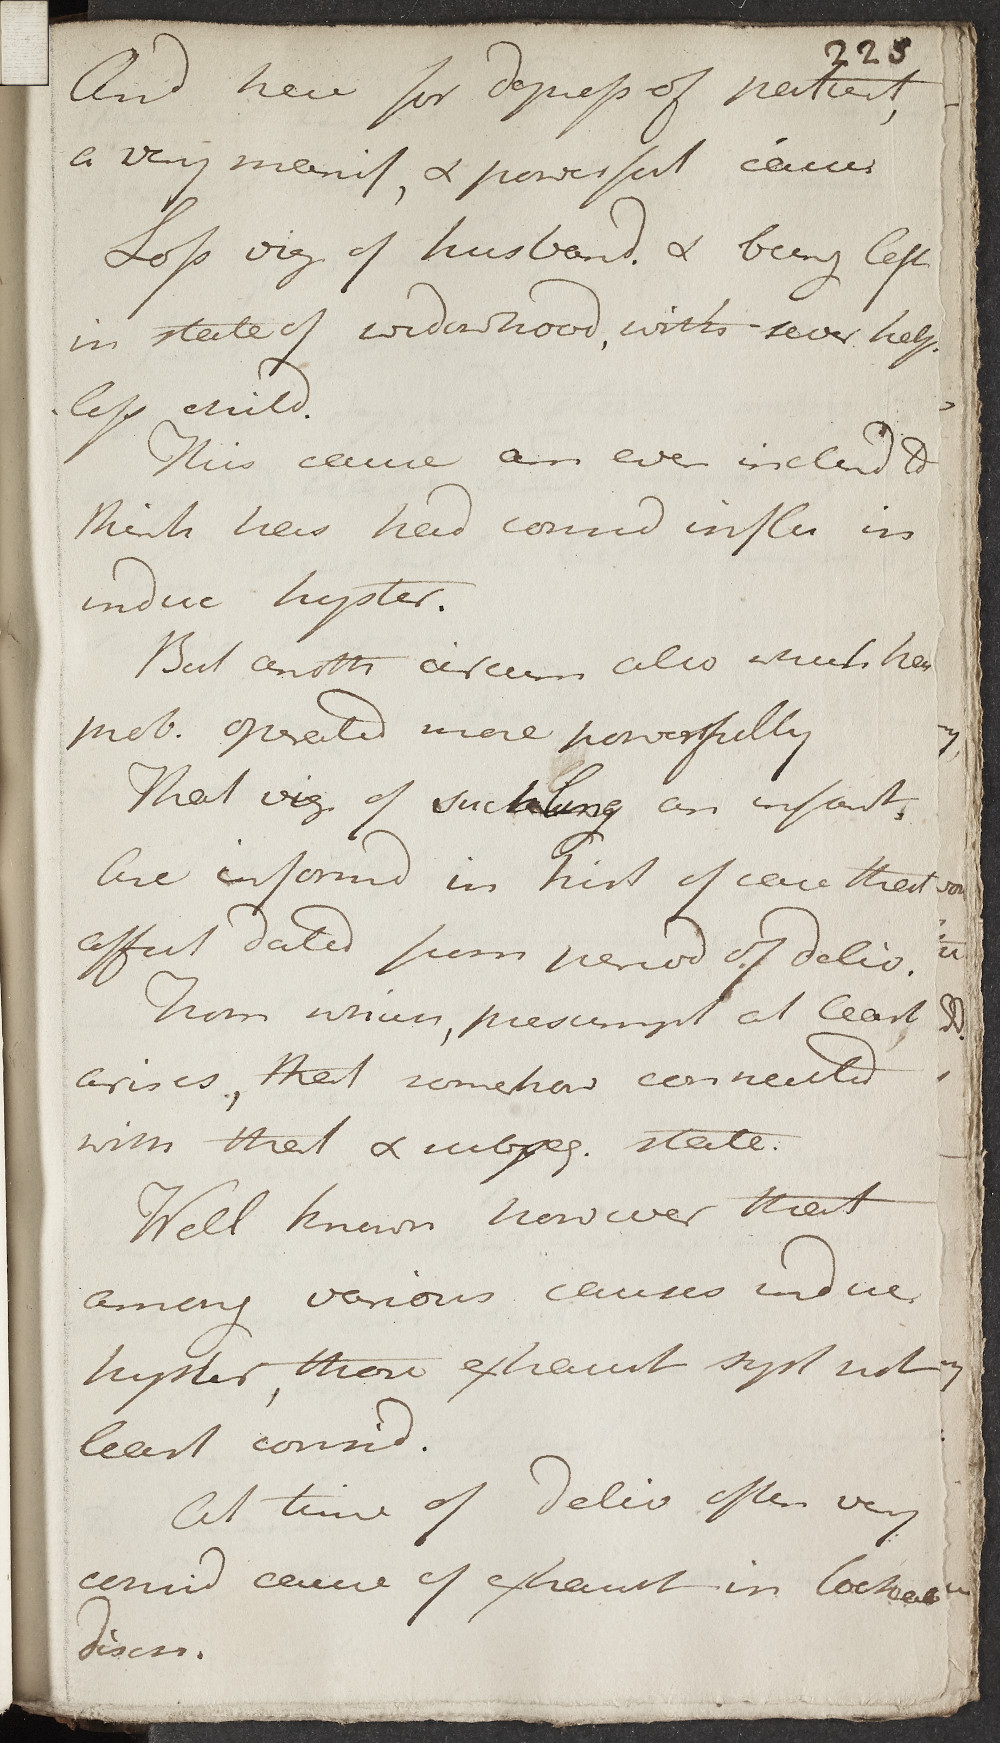 225
And here for depress of patient,
a very manif, & powerful cause
Loss viz of husband. & being left
in state of widowhood, with sever help
less child.
This cause am even inclind to
think has had consid influ in
induc hyster.
But anoth circum also which has
prob. operated more powerfully
That viz of suckling an infant.
Are informd in hist of case that
affect dated from period of deliv.
From which, presumpt at least
arises, that somehow connected
with that & subseq. state.
Well known however that
among various causes induc
hyster, those exhaust syst not
least consid.
At time of deliv often very
consid cause of exhaust in lochial
disch.